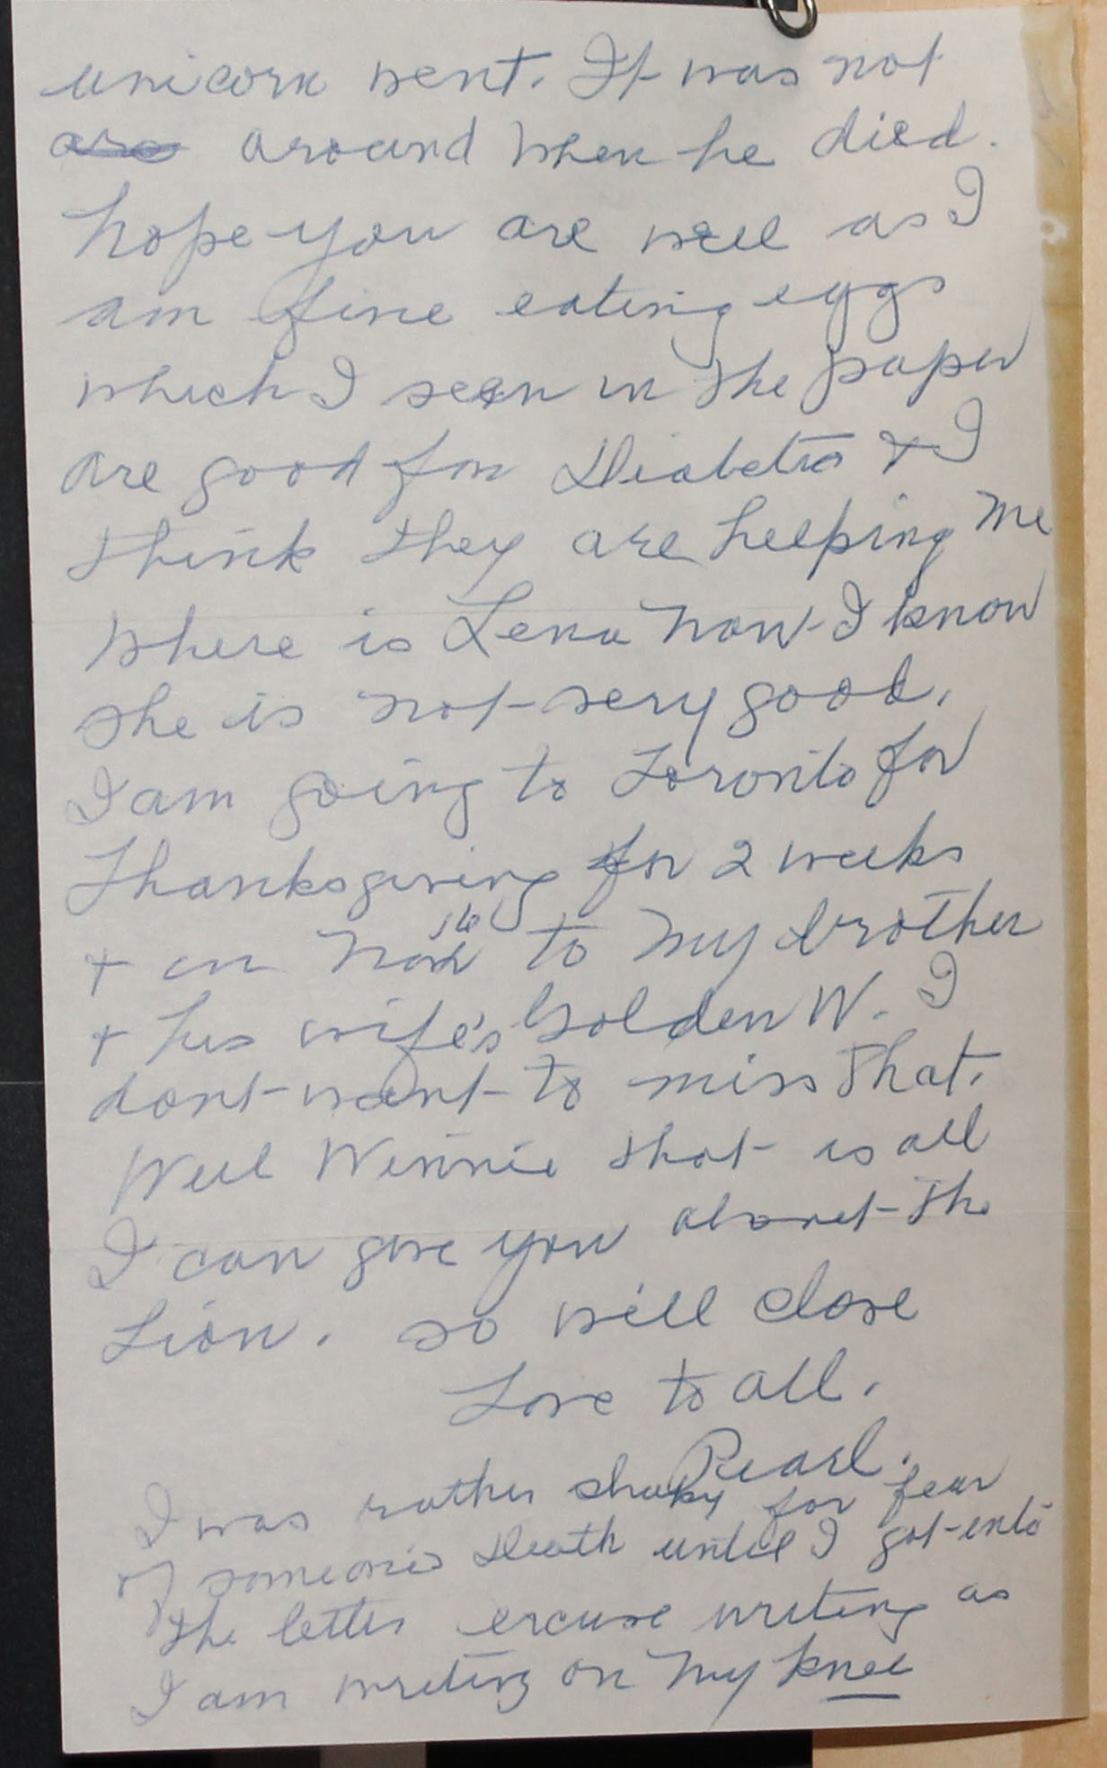 unicorn went. It was not
are around when he died.
hope you are well as I
am fine eating eggs
which I seen in the paper
are good for Diabetes & I
think they are helping me
Where is Lena now I know
she is not very good.
I am going to Toronto for
Thanksgiving for 2 weeks
+ on Nov 16 to my brother
+ his wife's Golden W. I
dont want to miss that.
Well Winnie that is all
I can give you about the
Lion. so will close
Love to all.
Pearl.
I was rather shaky for fear
of someone's Death until I got into
the letter excuse writing as
I am writing on my knee